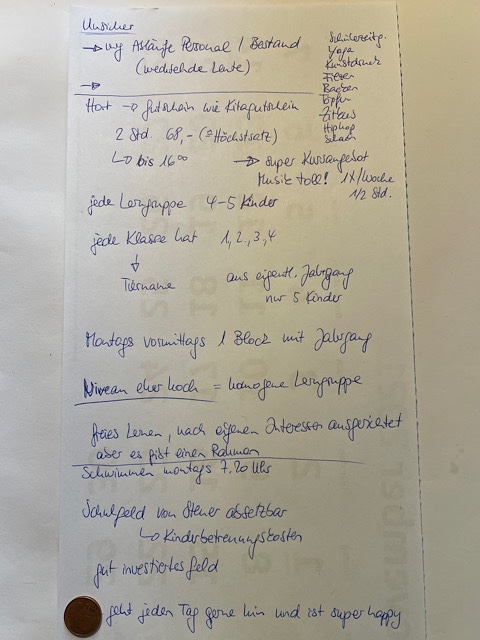 Unsicher
→ wg Abläufe Personal / Bestand
(wechselnde Leute)
→
Schülerzeitg.
Yoga
Kunstdruck
Backen
Töpfern
Zirkus
HipHop
Schach
Hort → Gutschein wie Kitagutschein
2 Std. 68,- (= Höchstsatz)
↳ bis 16°°
→ super Kursangebot
Musik toll! 1x/Woche
1/2 Std.
jede Lerngruppe 4-5 Kinder
jede Klasse hat 1, 2, 3, 4
↓
Tiername
aus eigentl. Jahrgang
nur 5 Kinder
Montags vormittags 1 Block mit Jahrgang
Niveau eher hoch = homogene Lerngruppe
freies Lernen, nach eigenen Interessen ausgerichtet
aber es gibt einen Rahmen
Schwimmen montags 7.20 Uhr
Schulgeld von Steuer absetzbar
↳ Kinderbetreuungskosten
gut investiertes Geld
geht jeden Tag gerne hin und ist super happy